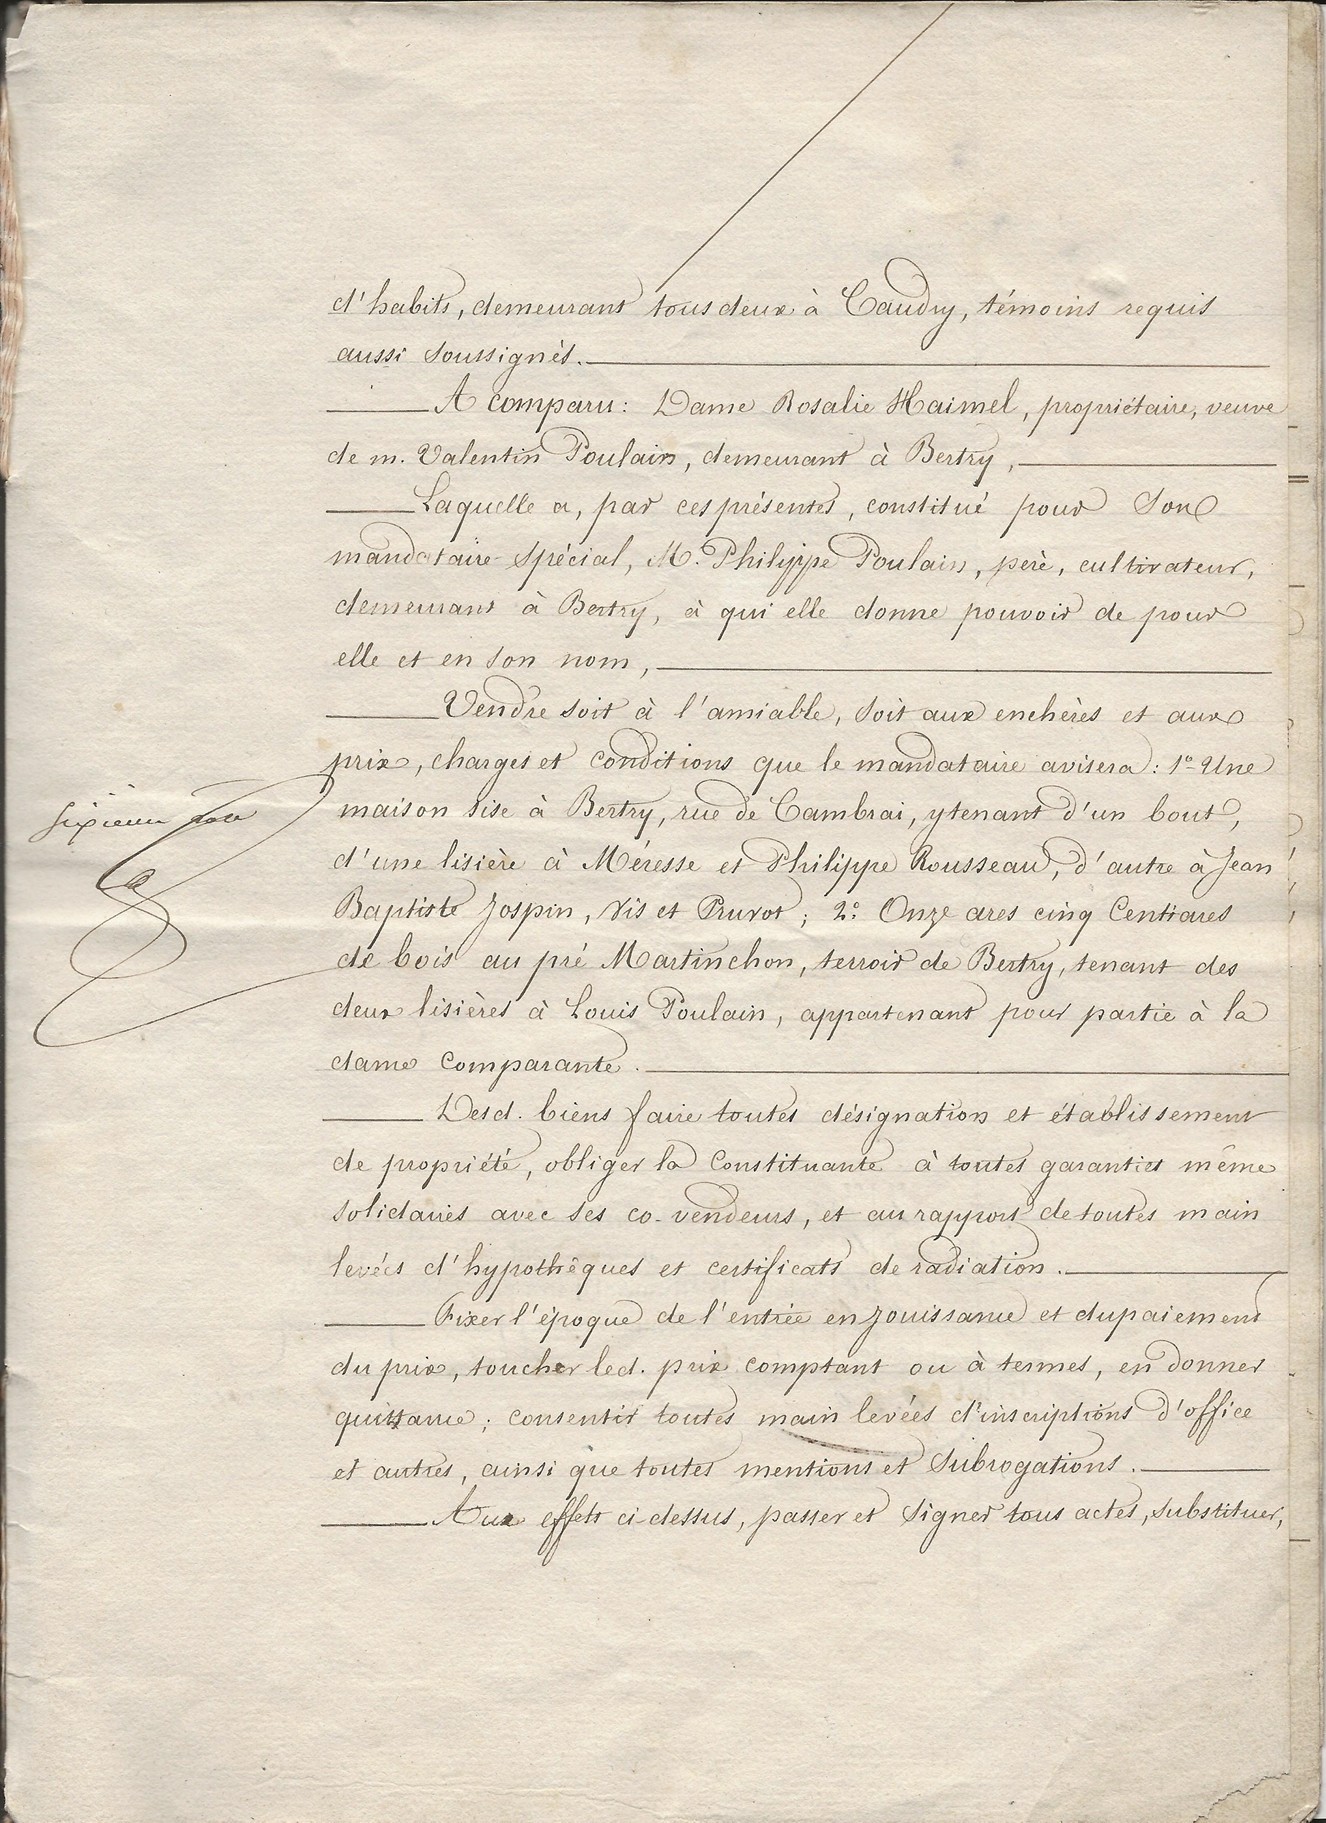 d'habits, demeurant tous deux à Caudry, témoins requis
aussi soussignés.
A comparu : Dame Rosalie Haimel, propriétaire, veuve
de m. Valentin Poulain, demeurant à Bertry,
Laquelle a, par ces présentes, constitué pour son
mandataire spécial, M. Philippe Poulain, père, cultivateur,
demeurant à Bertry, à qui elle donne pouvoir de pour
elle et en son nom,
Vendre soit à l'amiable, soit aux enchères et aux
prix, charges et conditions que le mandataire avisera : 1º Une
sixième
maison sise à Bertry, rue de Cambrai, y tenant d'un bout,
d'une lisière à Méresse et Philippe Rousseau, d'autre à Jean
Baptiste Jospin, Vis et Pruvot ; 2º Onze ares cinq Centiares
de bois au pré Martinchon, terroir de Bertry, tenant des
deux lisières à Louis Poulain, appartenant pour partie à la
dame comparante.
Desd. biens faire toutes désignation et établissement
de propriété, obliger la Constituante à toutes garanties même
solidaires avec ses co-vendeurs, et au rapport de toutes main
levées d'hypothèques et certificats de radiation.
Fixer l'époque de l'entrée en jouissance et du paiement
du prix, toucher led. prix comptant ou à termes, en donner
quittance ; consentir toutes main levées d'inscriptions d'office
et autres, ainsi que toutes mentions et subrogations.
Aux effets ci-dessus, passer et signer tous actes, substituer,